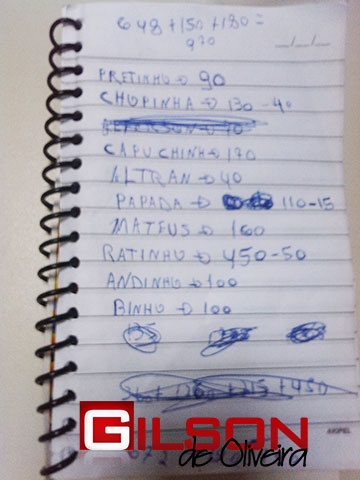 648+150+180=
970
__/__/__
PRETINHO → 90
CHUPINHA → 130-40
CAPUCHINHO 170
ALTRAN → 40
PAPADA → 110-15
MATEUS → 160
RATINHO → 450-50
ANDINHO → 100
BINHO → 100
+450
GILSON
de Oliveira
AXIPEL